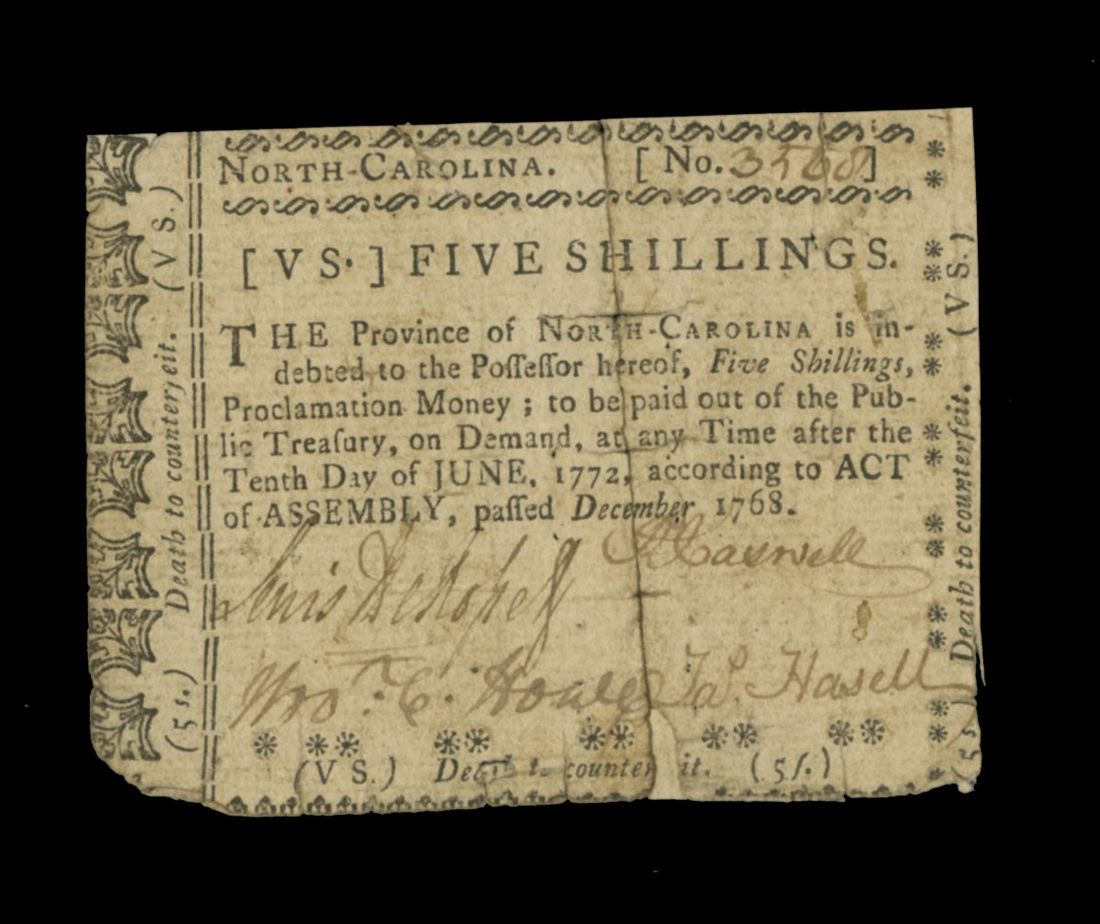 NORTH-CAROLINA. [ No. 3568]
[ V S. ] FIVE SHILLINGS.
THE Province of NORTH-CAROLINA is in-
debted to the Poſſeſſor hereof, Five Shillings,
Proclamation Money ; to be paid out of the Pub-
lic Treaſury, on Demand, at any Time after the
Tenth Day of JUNE, 1772, according to ACT
of ASSEMBLY, paſſed December 1768.
Lewis DeRosset
Ja.s Hasell
(V S.) Death to counterfeit. (5ſ.)
(5 s.) Death to counterfeit. (V S.)
(5 s.) Death to counterfeit. (V S.)